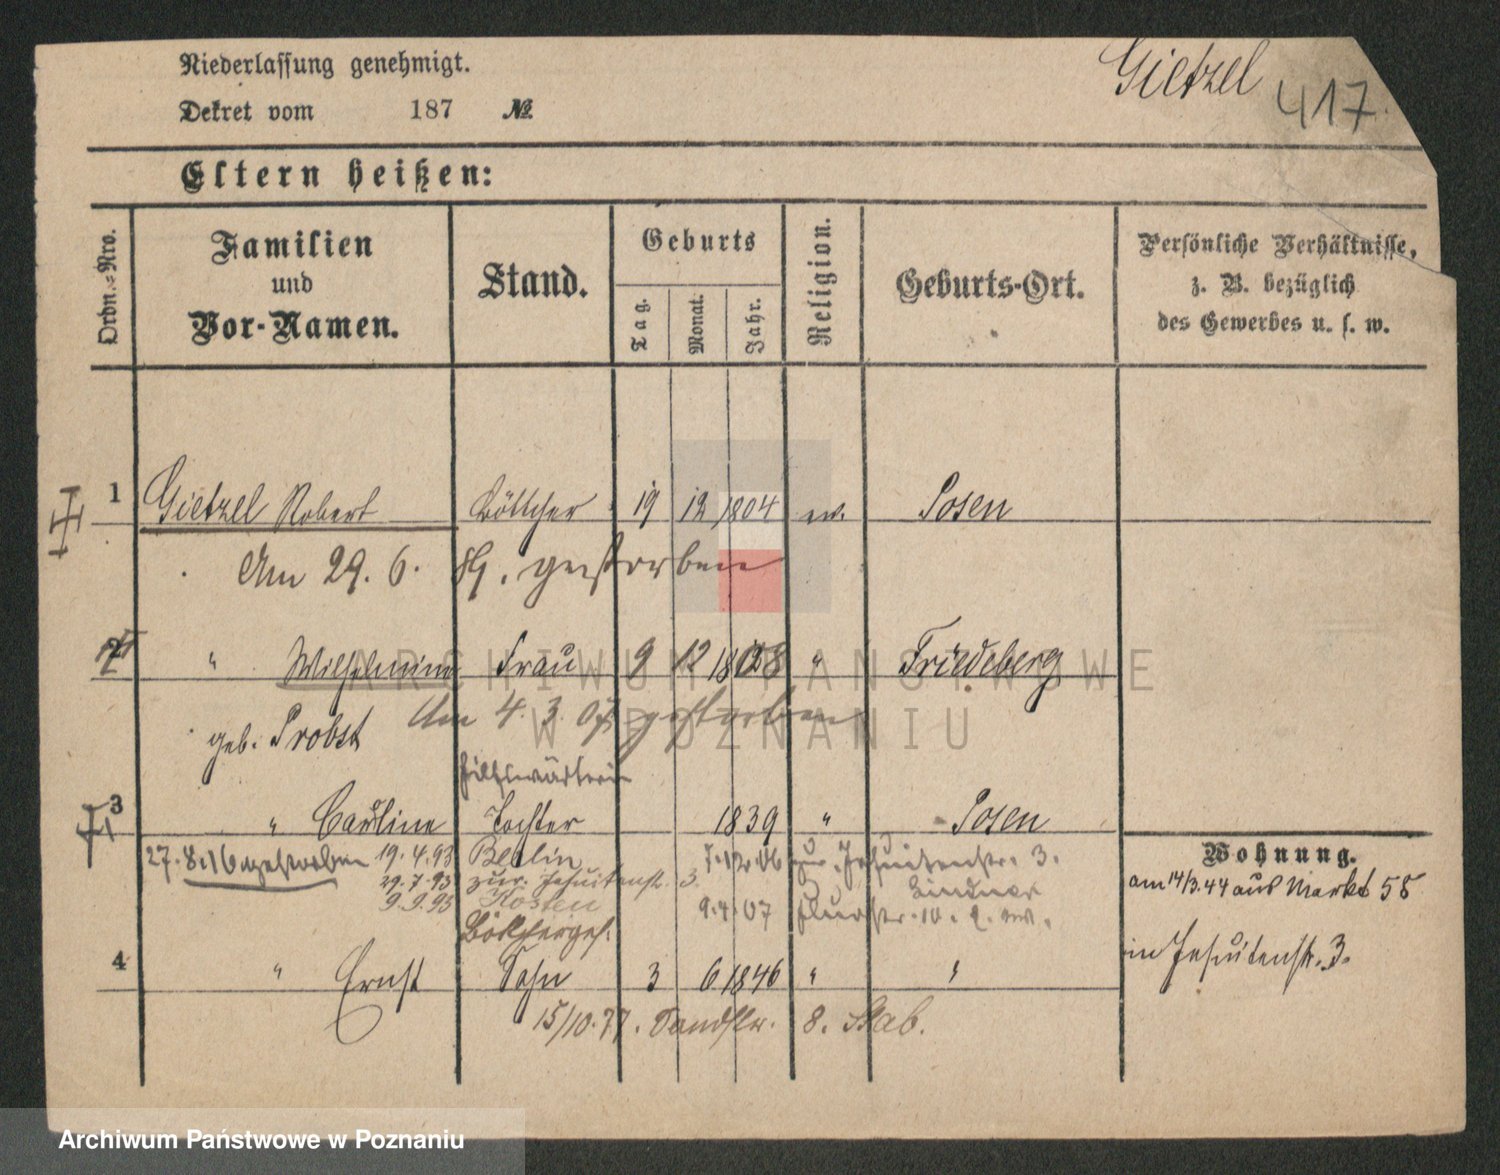 Niederlassung genehmigt.
Gietzel
417.
Dekret vom 187 №
Eltern heißen:
Ordn.-Nro.
Familien
und
Vor-Namen.
Stand.
Geburts
Tag.
Monat.
Jahr.
Religion.
Geburts-Ort.
Persönliche Verhältnisse,
z. B. bezüglich
des Gewerbes u. s. w.
1 Gietzel Robert Böttcher 19 12 1804 ev. Posen
Am 29. 6. 89. gestorben
2 " Wilhelmine Frau 9 12 18 " Friedeberg
Am 4. 3. 07 gestorben
geb. Probst
Hilfswärterin
3 " Caroline Tochter 1839 " Posen
Wohnung.
27.8.16 gestorben 19.4.93 Berlin 7.12.06 zur. Jesuitenstr. 3.
29.7.93 zur. Jesuitenstr. 3. Lindner
9.9.93 Kosten 9.4.07
am 14/3.44 aus Markt 58
in Jesuitenstr. 3.
Böttcherges.
4 " Ernst Sohn 3 6 1846 " "
15/10.77. Sandstr. 8.
ARCHIWUM PAŃSTWOWE
W POZNANIU
Archiwum Państwowe w Poznaniu